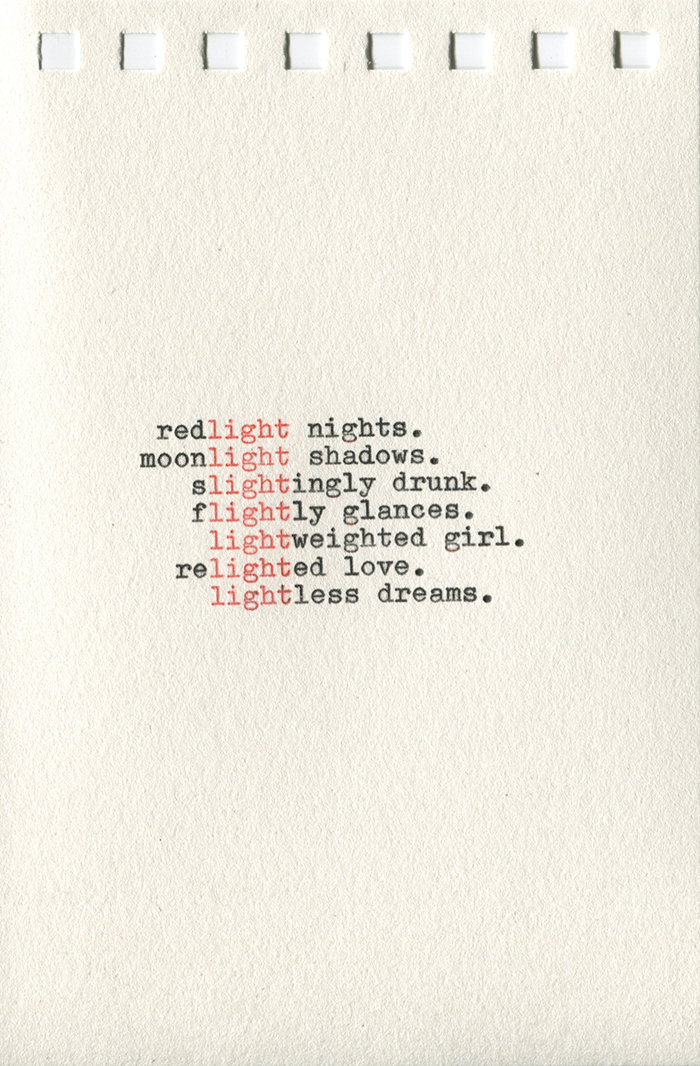 redlight nights.
moonlight shadows.
slightingly drunk.
flightly glances.
lightweighted girl.
relighted love.
lightless dreams.